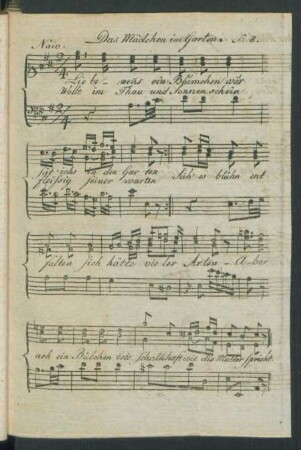 Das Mädchen im Garten. N 8.
Naiv.
Lie be – wens ein Blümchen wär
Wollt im Thau und Sonnenschein
ich's in den Gar ten
fleißig seiner warten Säh es blühn ent
falten sich hätte vie ler Arten – A ber
ach ein Bübchen ists schalkhaft wie die Mutter spricht